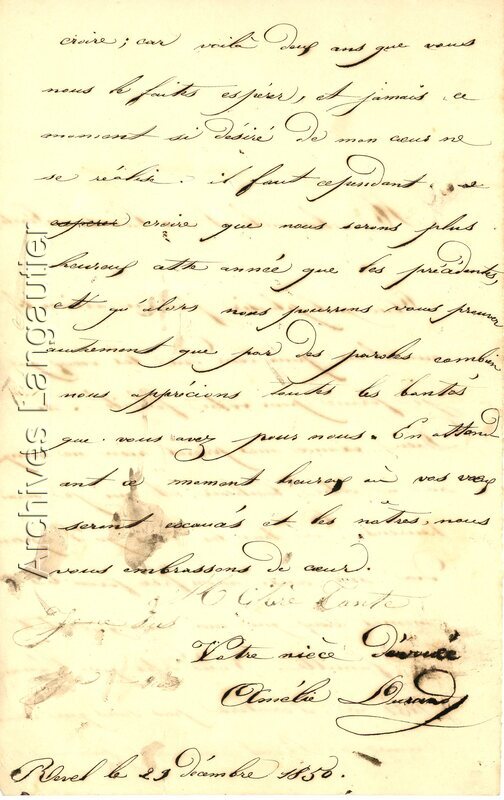 croire; car voilà deux ans que vous
nous le faites espérer, et jamais ce
moment si désiré de mon cœur ne
se réalise. il faut cependant
esperer croire que nous serons plus
heureux cette année que les précédentes,
et qu'alors nous pourrons vous prouver
autrement que par des paroles combien
nous apprécions toutes les bontés
que vous avez pour nous. En attend
ant ce moment heureux où vos vœux
seront exaucés et les nôtres, nous
vous embrassons de cœur.
Chère Tante
Votre nièce Dévouée
Amélie Durand
Revel le 29 décembre 1850.
Archives Langautier